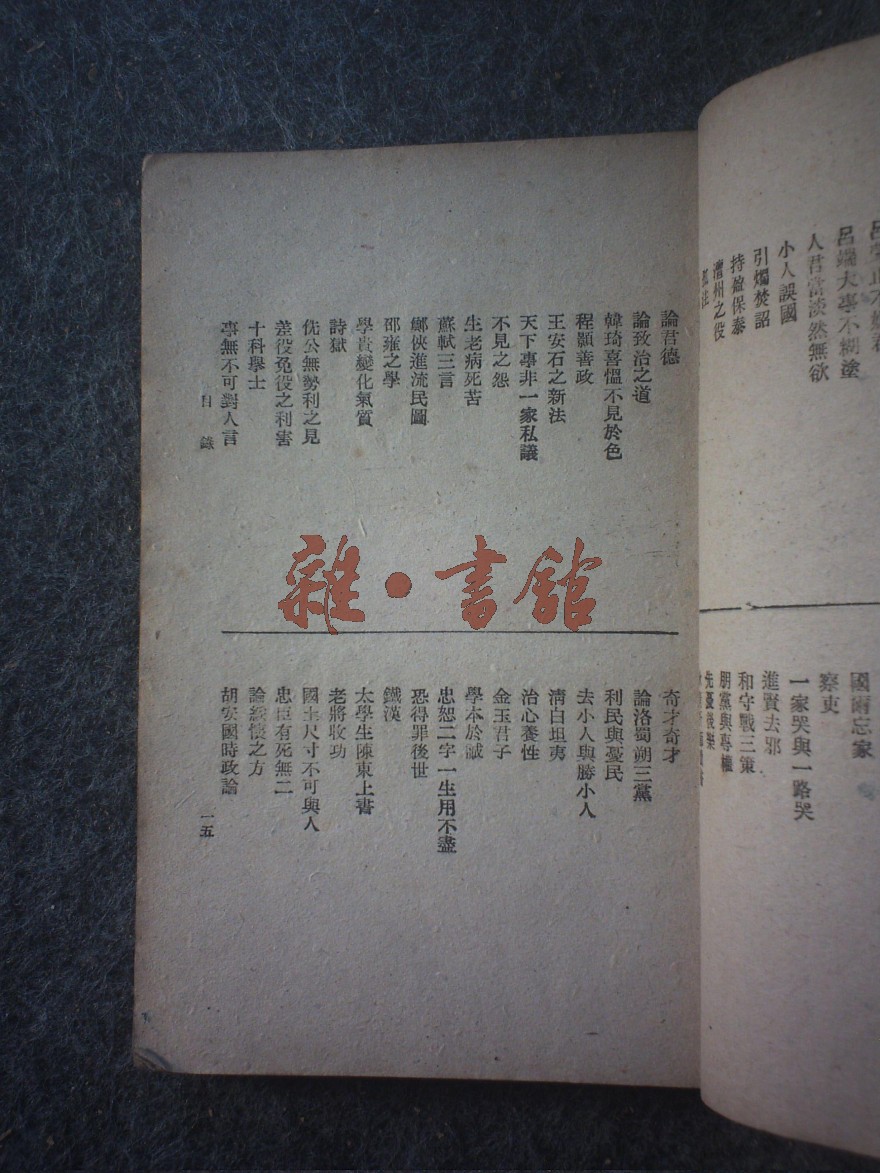 呂端大事不糊塗
人君當淡然無欲
小人誤國
引燭焚詔
持盈保泰
澶州之役
孤注
國爾忘家
察吏
一家哭與一路哭
進賢去邪
和守戰三策
朋黨與專權
先憂後樂
論君德
論致治之道
韓琦喜慍不見於色
程顥善政
王安石之新法
天下事非一家私議
不見之怨
生老病死苦
蘇軾三言
鄭俠進流民圖
邵雍之學
學貴變化氣質
詩獄
侁公無勢利之見
差役免役之利害
十科學士
事無不可對人言
目錄
奇才奇才
論洛蜀朔三黨
利民與憂民
去小人與勝小人
清白坦夷
治心養性
金玉君子
學本於誠
忠恕二字一生用不盡
恐得罪後世
鐵漢
太學生陳東上書
老將收功
國土尺寸不可與人
忠臣有死無二
論綏懷之方
胡安國時政論
一五
雜·書館